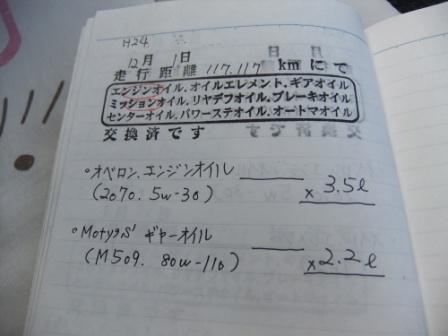 H24
12月 1日
走行距離 117.117 kmにて
エンジンオイル.オイルエレメント.ギアオイル
ミッションオイル.リヤデフオイル.ブレーキオイル
センターオイル.パワーステオイル.オートマオイル
交換済です
・オベロン.エンジンオイル
(2070. 5w-30) ×3.5ℓ
・Moty'S' ギヤーオイル
(M509. 80w-110) ×2.2ℓ